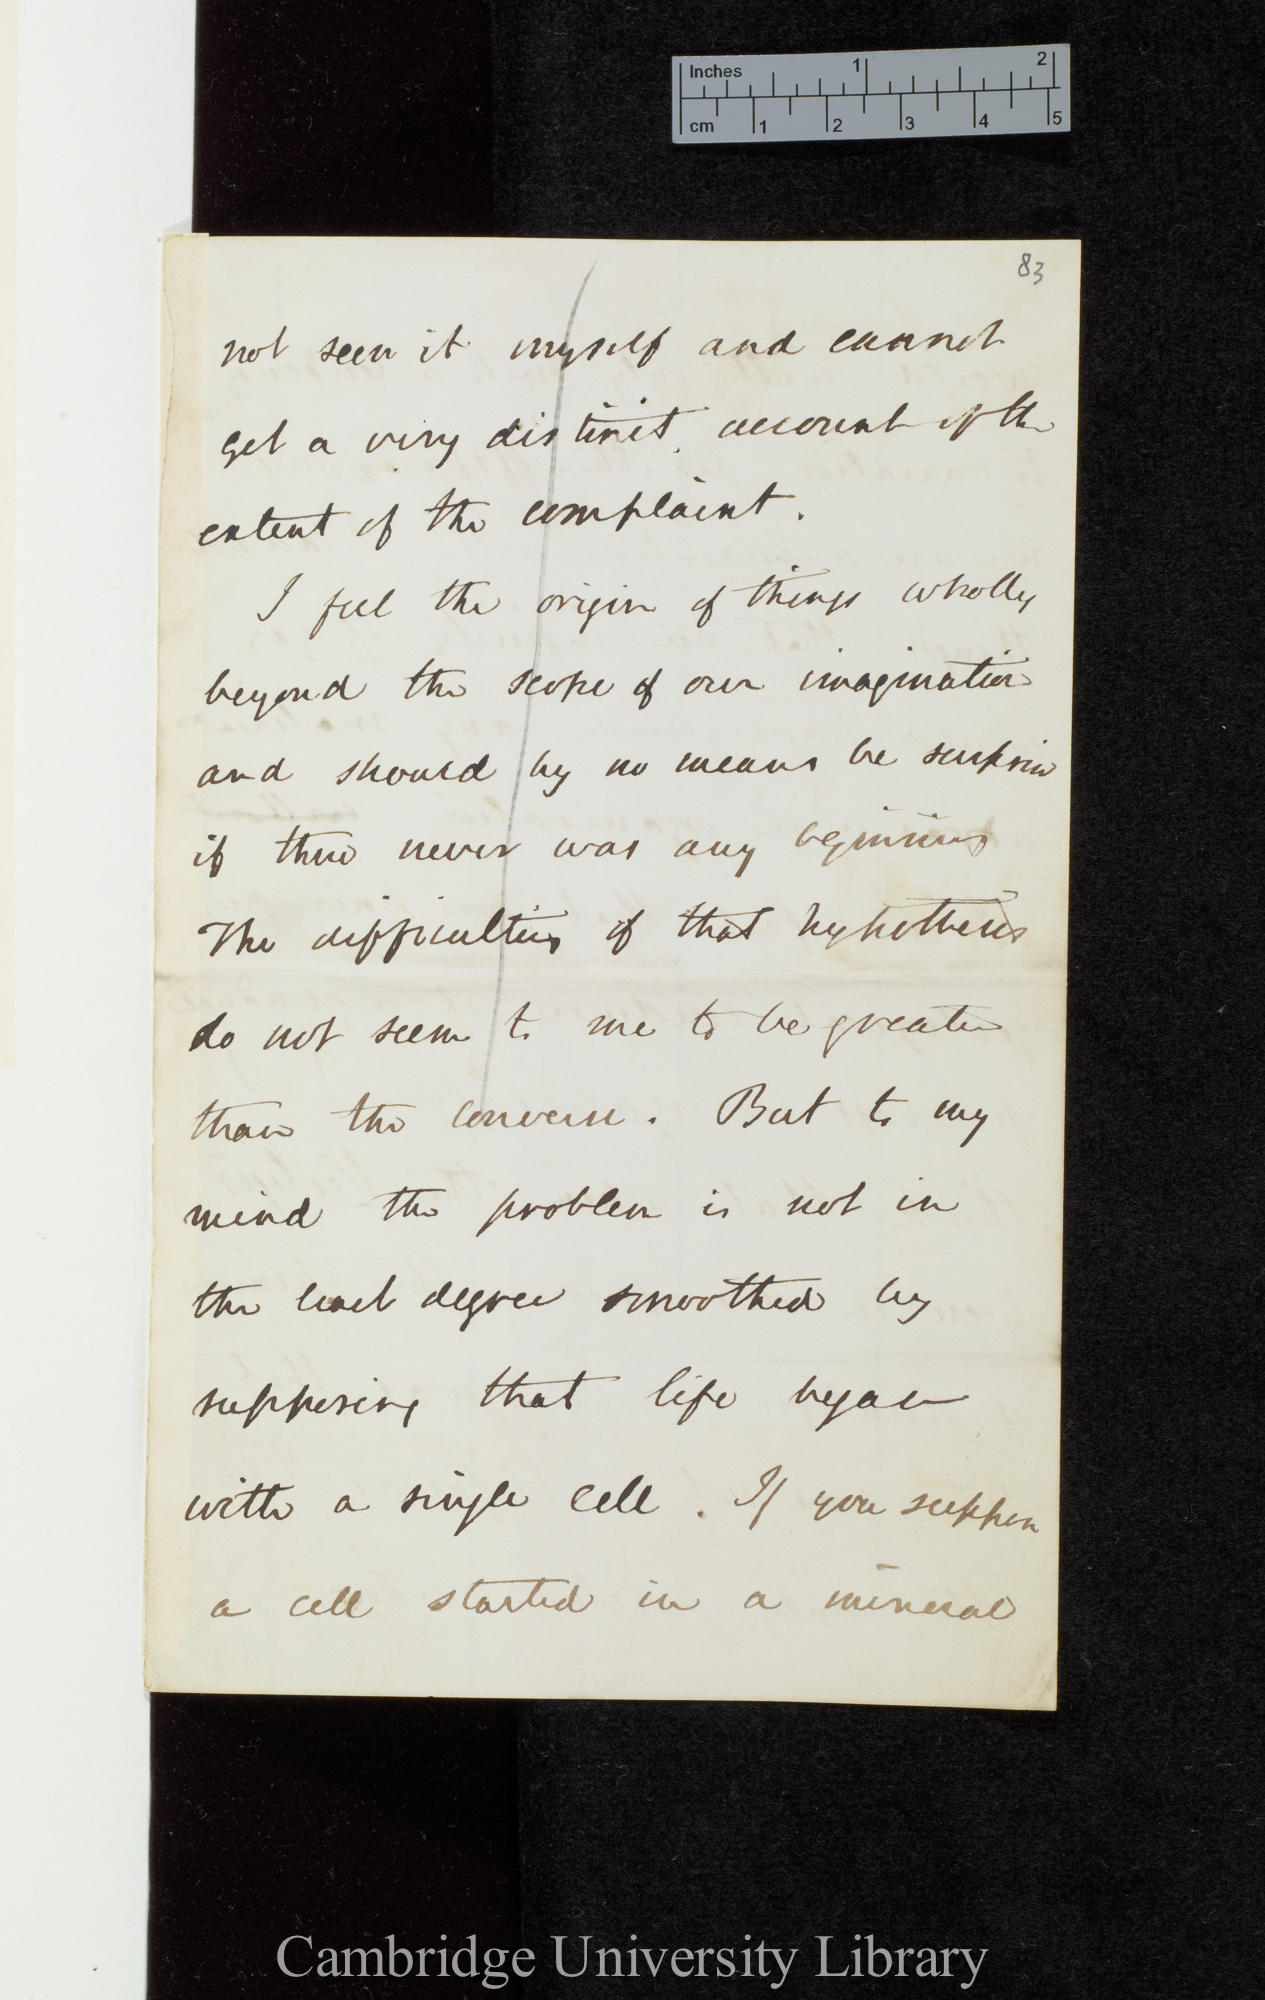 Inches 1 2
cm 1 2 3 4 5
83
not seen it myself and cannot
get a very distinct account of the
extent of the complaint.
I feel the origin of things wholly
beyond the scope of our imagination
and should by no means be surprise
if there never was any beginning
The difficulties of that hypothesis
do not seem to me to be greater
than the converse. But to my
mind the problem is not in
the least degree smoothed by
supposing that life began
with a single cell. If you suppose
a cell started in a mineral
Cambridge University Library